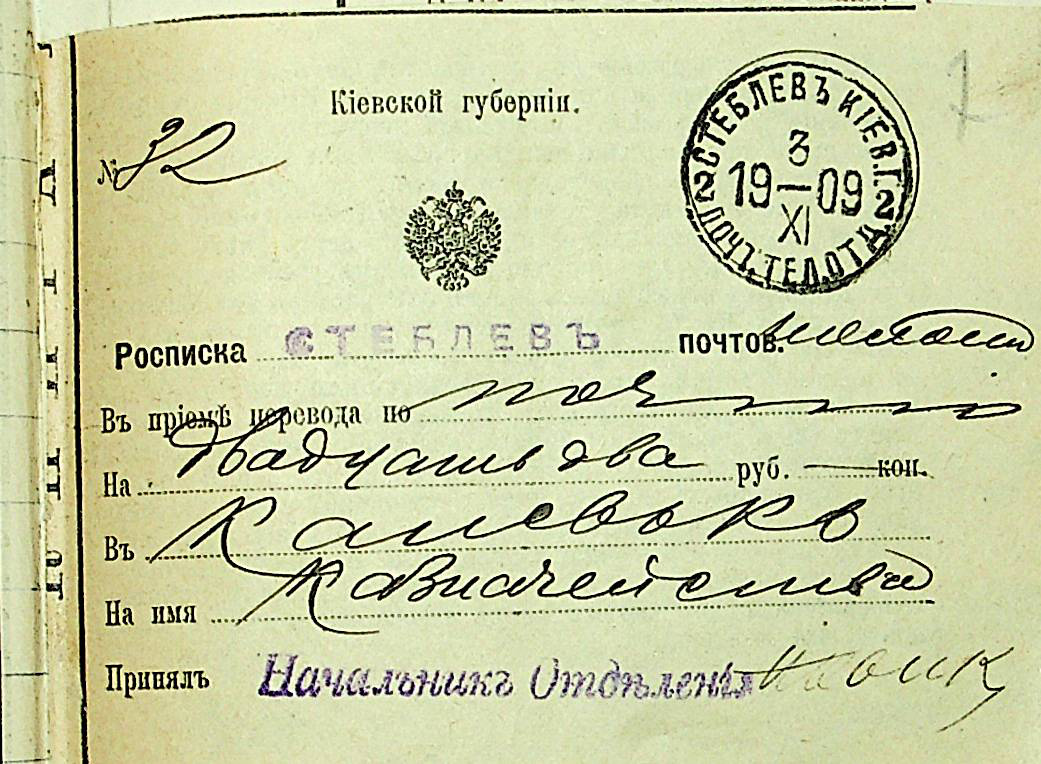 Кіевской губерніи.
№ 32
СТЕБЛЕВЪ КІЕВ.Г.
3
19—09
XI
2 2
ПОЧ.ТЕЛ.ОТД.
Росписка СТЕБЛЕВЪ почтов.
Въ пріемѣ перевода по поч
На Двадцать два руб. — коп.
Въ Каневъ
На имя Казначейства
Принялъ Начальникъ Отдѣленія